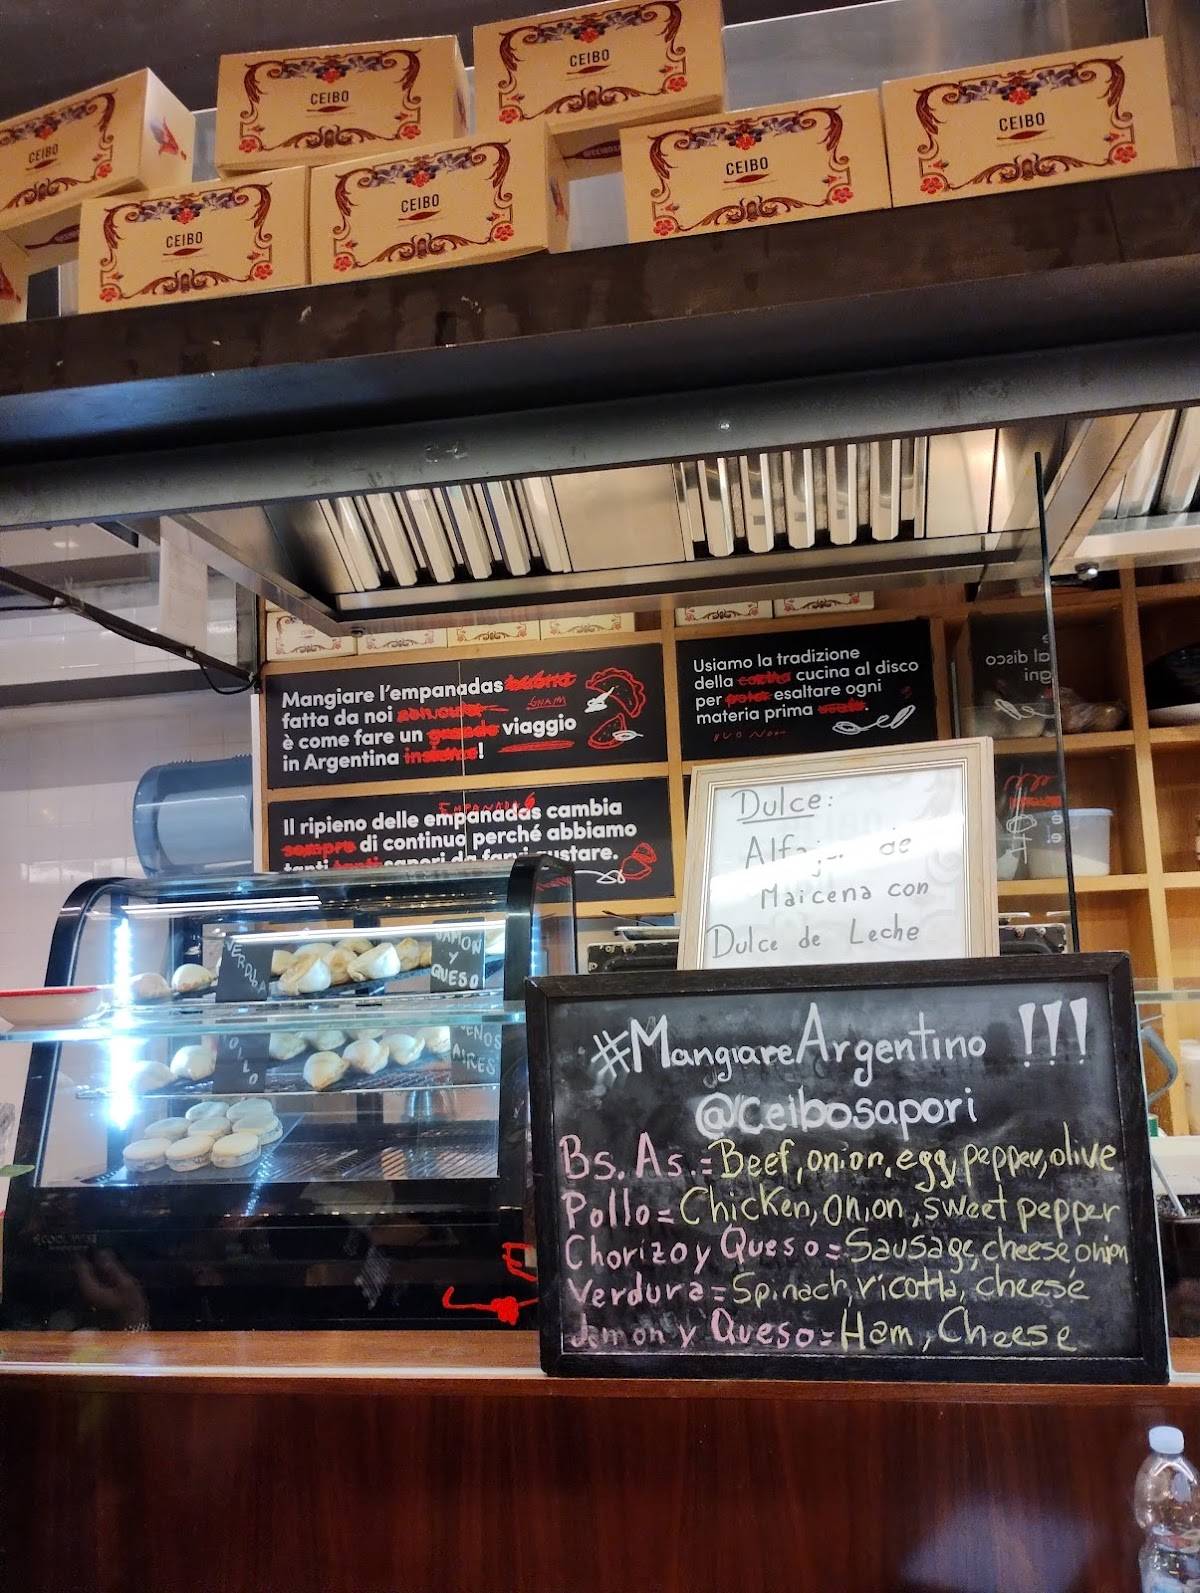 CEIBO
CEIBO
CEIBO
CEIBO
CEIBO
CEIBO
CEIBO
Mangiare l'empanadas
GNAM
fatta da noi
è come fare un grande viaggio
in Argentina !
Usiamo la tradizione
della cucina cucina al disco
per esaltare ogni
materia prima .
EMPANADAS
Il ripieno delle empanadas cambia
sempre di continuo perché abbiamo
tanti tanti sapori da farvi gustare.
Dulce:
de
Maicena con
Dulce de Leche
VERDURA
JAMON
Y
QUESO
POLLO
BUENOS
AIRES
#MangiareArgentino !!!
@ceibosapori
Bs. As.= Beef, onion, egg, pepper, olive
Pollo= Chicken, onion, sweet pepper
Chorizo y Queso= Sausage, cheese, onion
Verdura= Spinach, ricotta, cheese
Jamon y Queso= Ham, Cheese